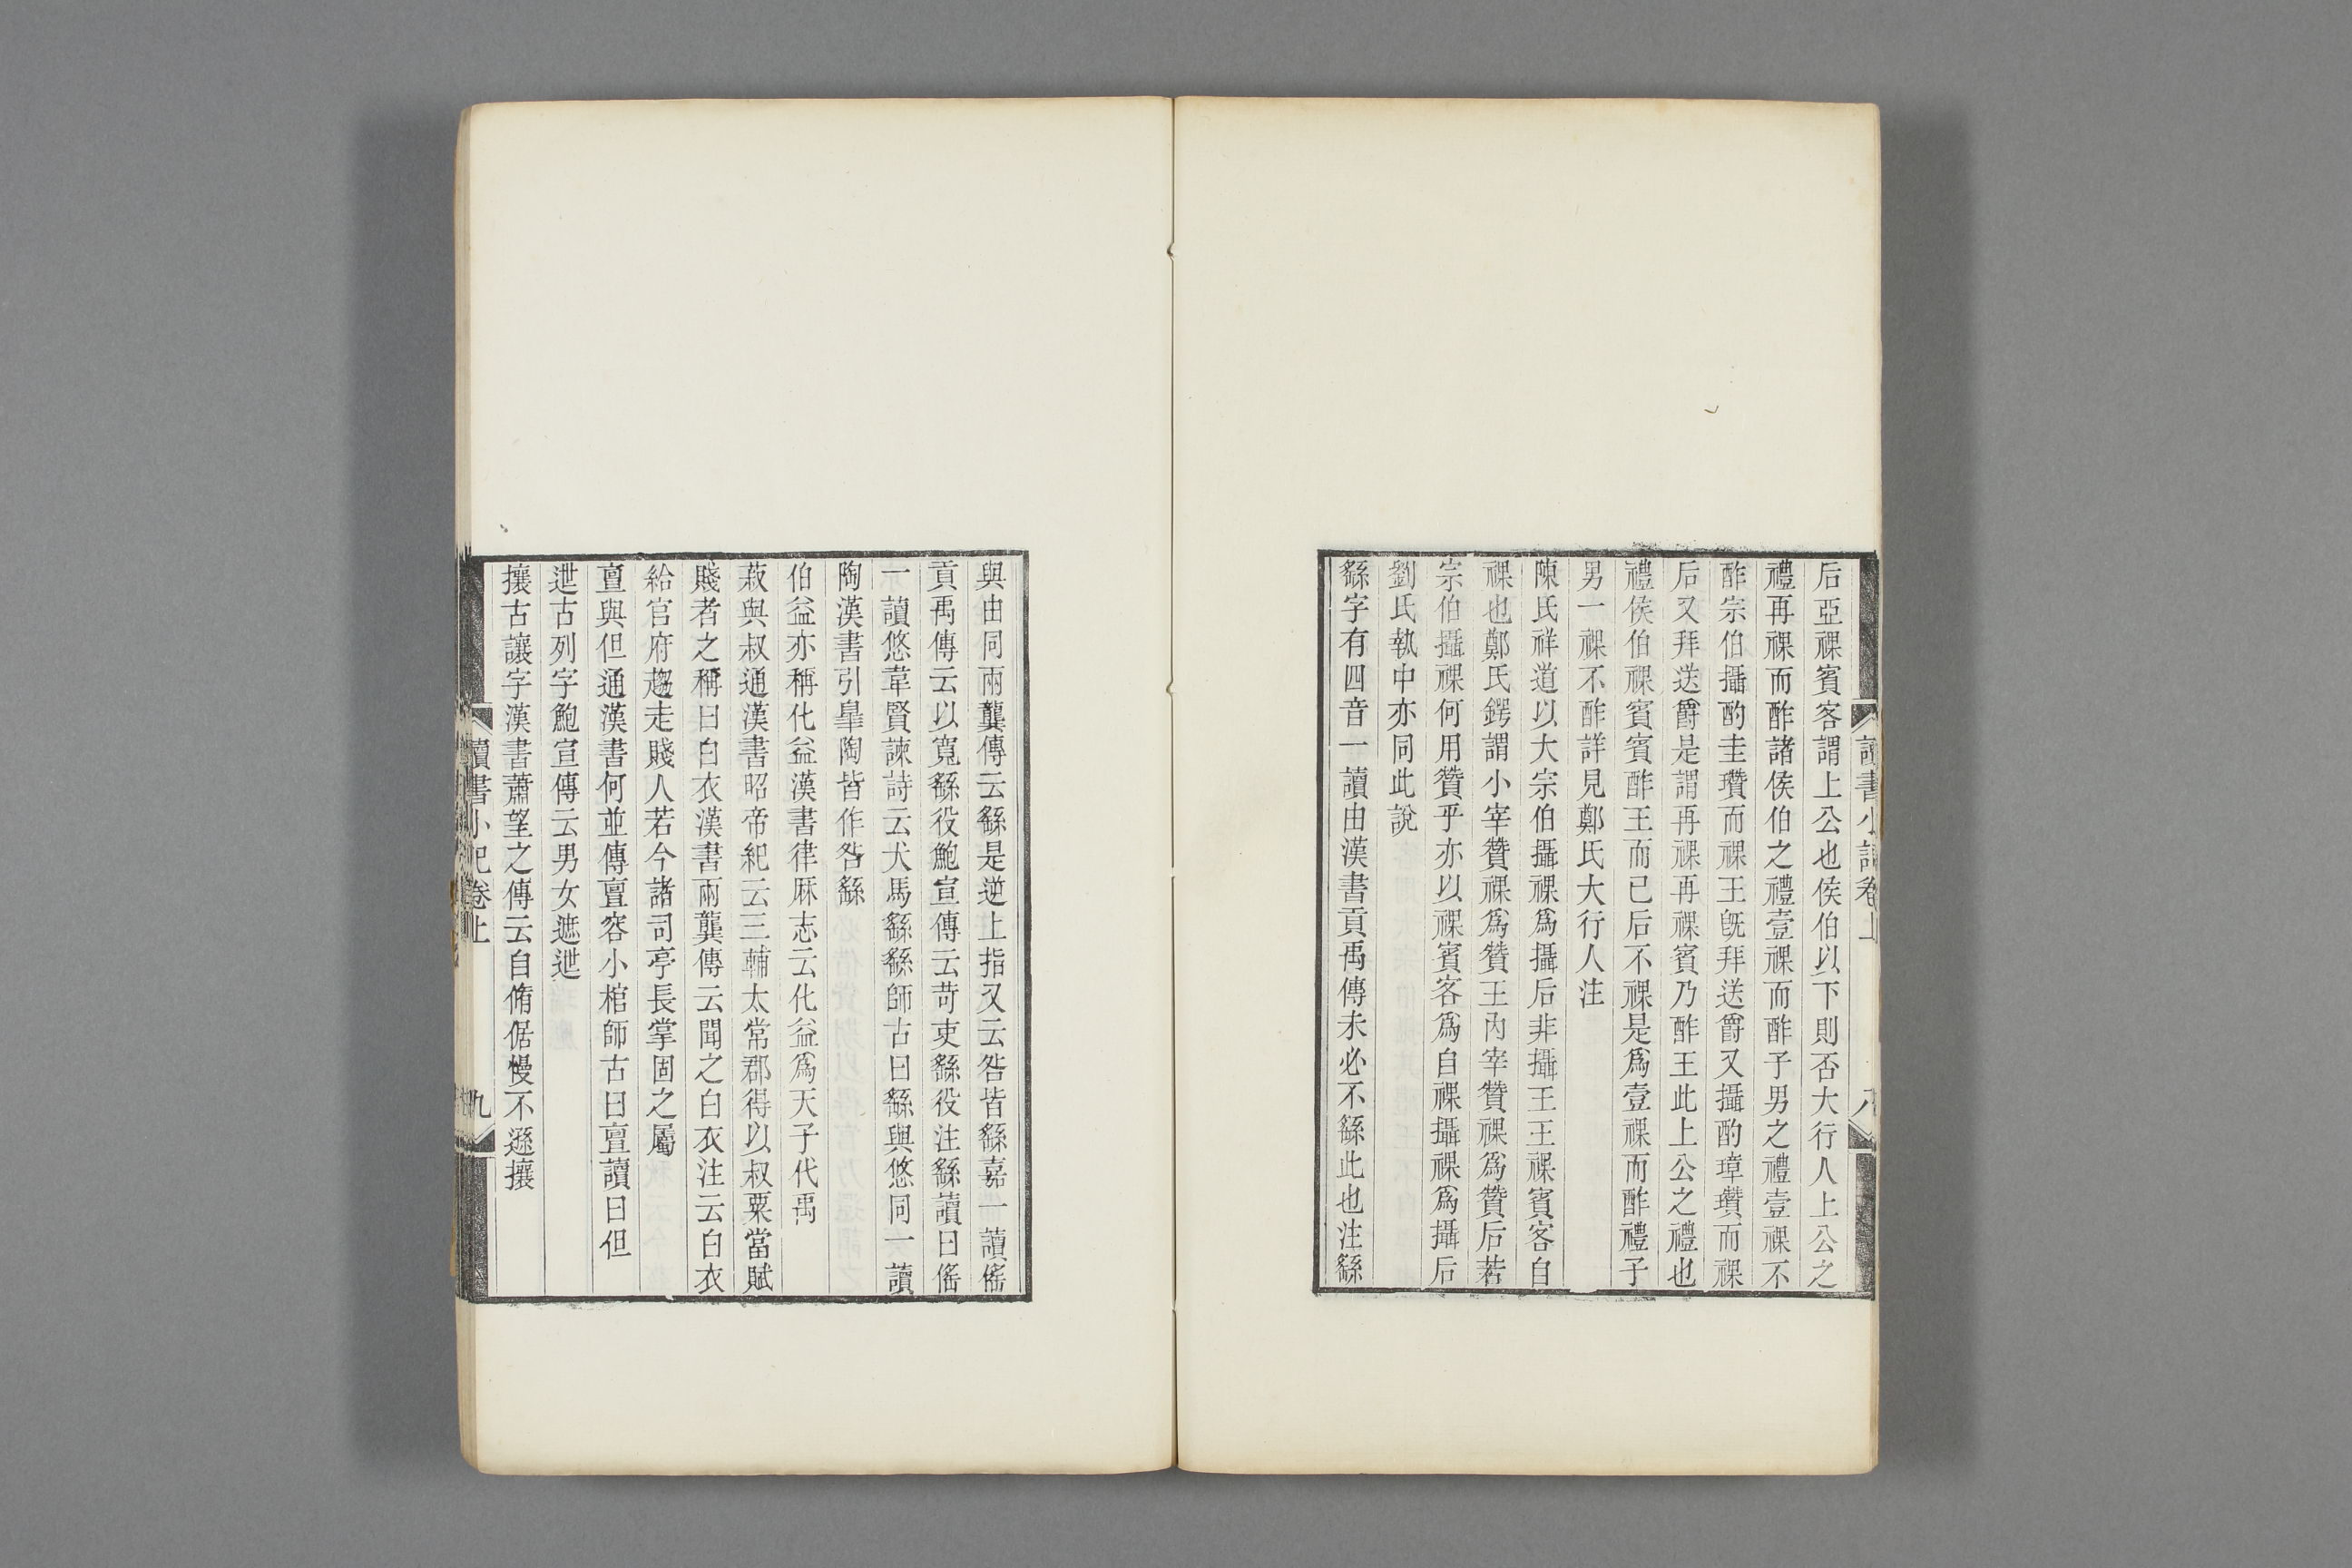 讀書小記卷上
八
后亞祼賓客謂上公也侯伯以下則否大行人上公之
禮再祼而酢諸侯伯之禮壹祼而酢子男之禮壹祼不
酢宗伯攝酌圭瓚而祼王旣拜送爵又攝酌璋瓚而祼
后又拜送爵是謂再祼再祼賓乃酢王此上公之禮也
禮侯伯祼賓賓酢王而已后不祼是爲壹祼而酢禮子
男一祼不酢詳見鄭氏大行人注
陳氏祥道以大宗伯攝祼爲攝后非攝王王祼賓客自
祼也鄭氏鍔謂小宰贊祼爲贊王內宰贊祼爲贊后若
宗伯攝祼何用贊乎亦以祼賓客爲自祼攝祼爲攝后
劉氏執中亦同此說
繇字有四音一讀由漢書貢禹傳未必不繇此也注繇
與由同兩龔傳云繇是逆上指又云咎皆繇嘉一讀傜
貢禹傳云以寬繇役鮑宣傳云苛吏繇役注繇讀曰傜
一讀悠韋賢諫詩云犬馬繇繇師古曰繇與悠同一讀
陶漢書引皐陶皆作咎繇
伯益亦稱化益漢書律厤志云化益爲天子代禹
菽與叔通漢書昭帝紀云三輔太常郡得以叔粟當賦
賤者之稱曰白衣漢書兩龔傳云聞之白衣注云白衣
給官府趨走賤人若今諸司亭長掌固之屬
亶與但通漢書何並傳亶容小棺師古曰亶讀曰但
迣古列字鮑宣傳云男女遮迣
攘古讓字漢書蕭望之傳云自脩倨慢不遜攘
讀書小記卷上
九